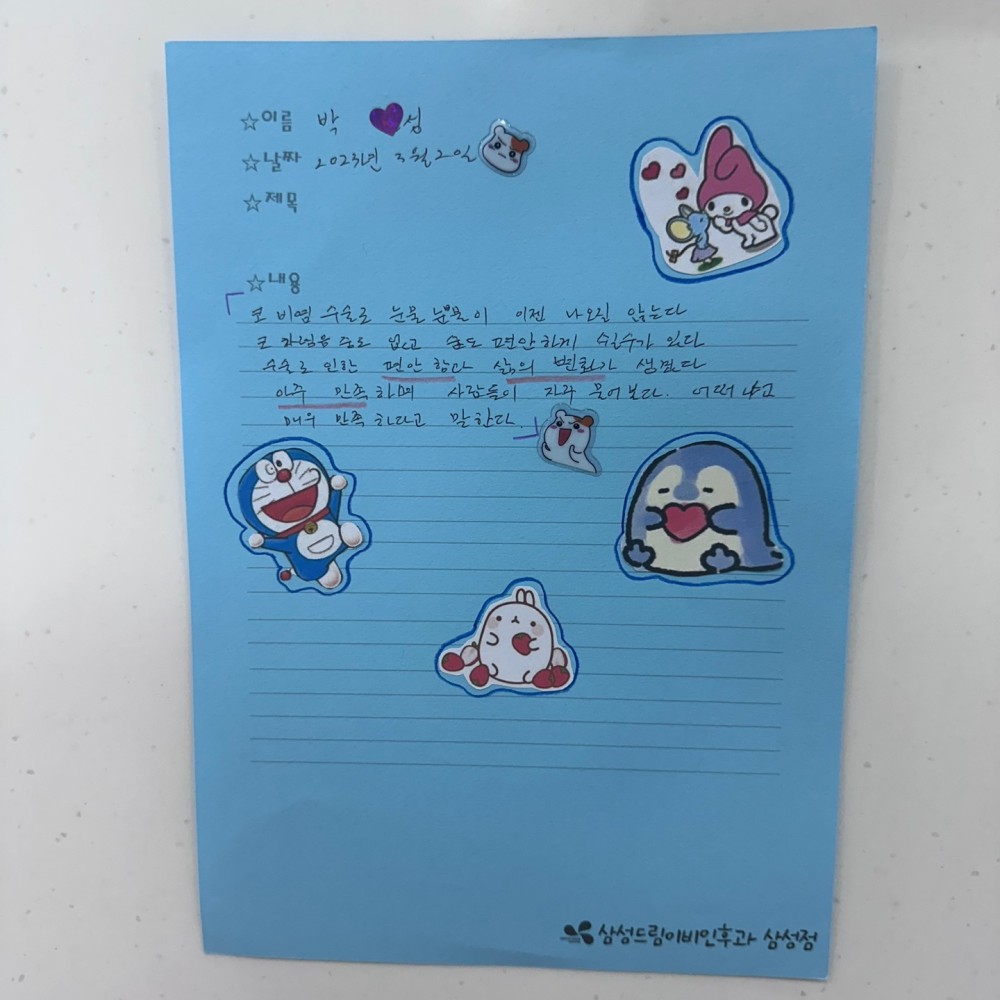 ☆이름 박 섬
☆날짜 2023년 3월 20일
☆제목
☆내용
「코 비염 수술로 눈물 눈꼽이 이젠 나오질 않는다
코 세척을 안해도 없고 숨도 편안하게 쉴수가 있다
수술로 인한 편안함과 삶의 변화가 생겼다
아주 만족하며 사람들이 자주 물어본다. 어떠냐고
매우 만족하라고 말한다.」
삼성드림이비인후과 삼성점